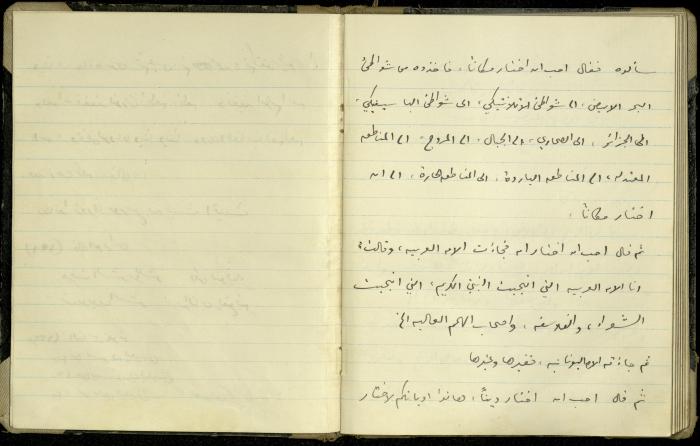 سألوه فقال احب ان اختار مكاناً، فاخذوه من شواطئ
البحر الابيض، الى شواطئ الاتلانتيكي، الى شواطئ الباسيفيكي،
الى الجزائر، الى الصحاري، الى الجبال، الى المروج، الى المناطق
المعتدله، الى المناطق الباردة، الى المناطق الحارة، الى ان
اختار مكاناً.
ثم قال احب ان اختار امه فجاءت الامه العربيه، وقالت:
انا الامه العربيه التي انجبت النبي الكريم، التي انجبت
الشعراء، والفلاسفه، واصحاب الهمم العاليه الخ
ثم جاءته الامه اليونانيه، فغيرها وغيرها
ثم قال احب ان اختار ديناً، هاتوا اديانكم لاختار